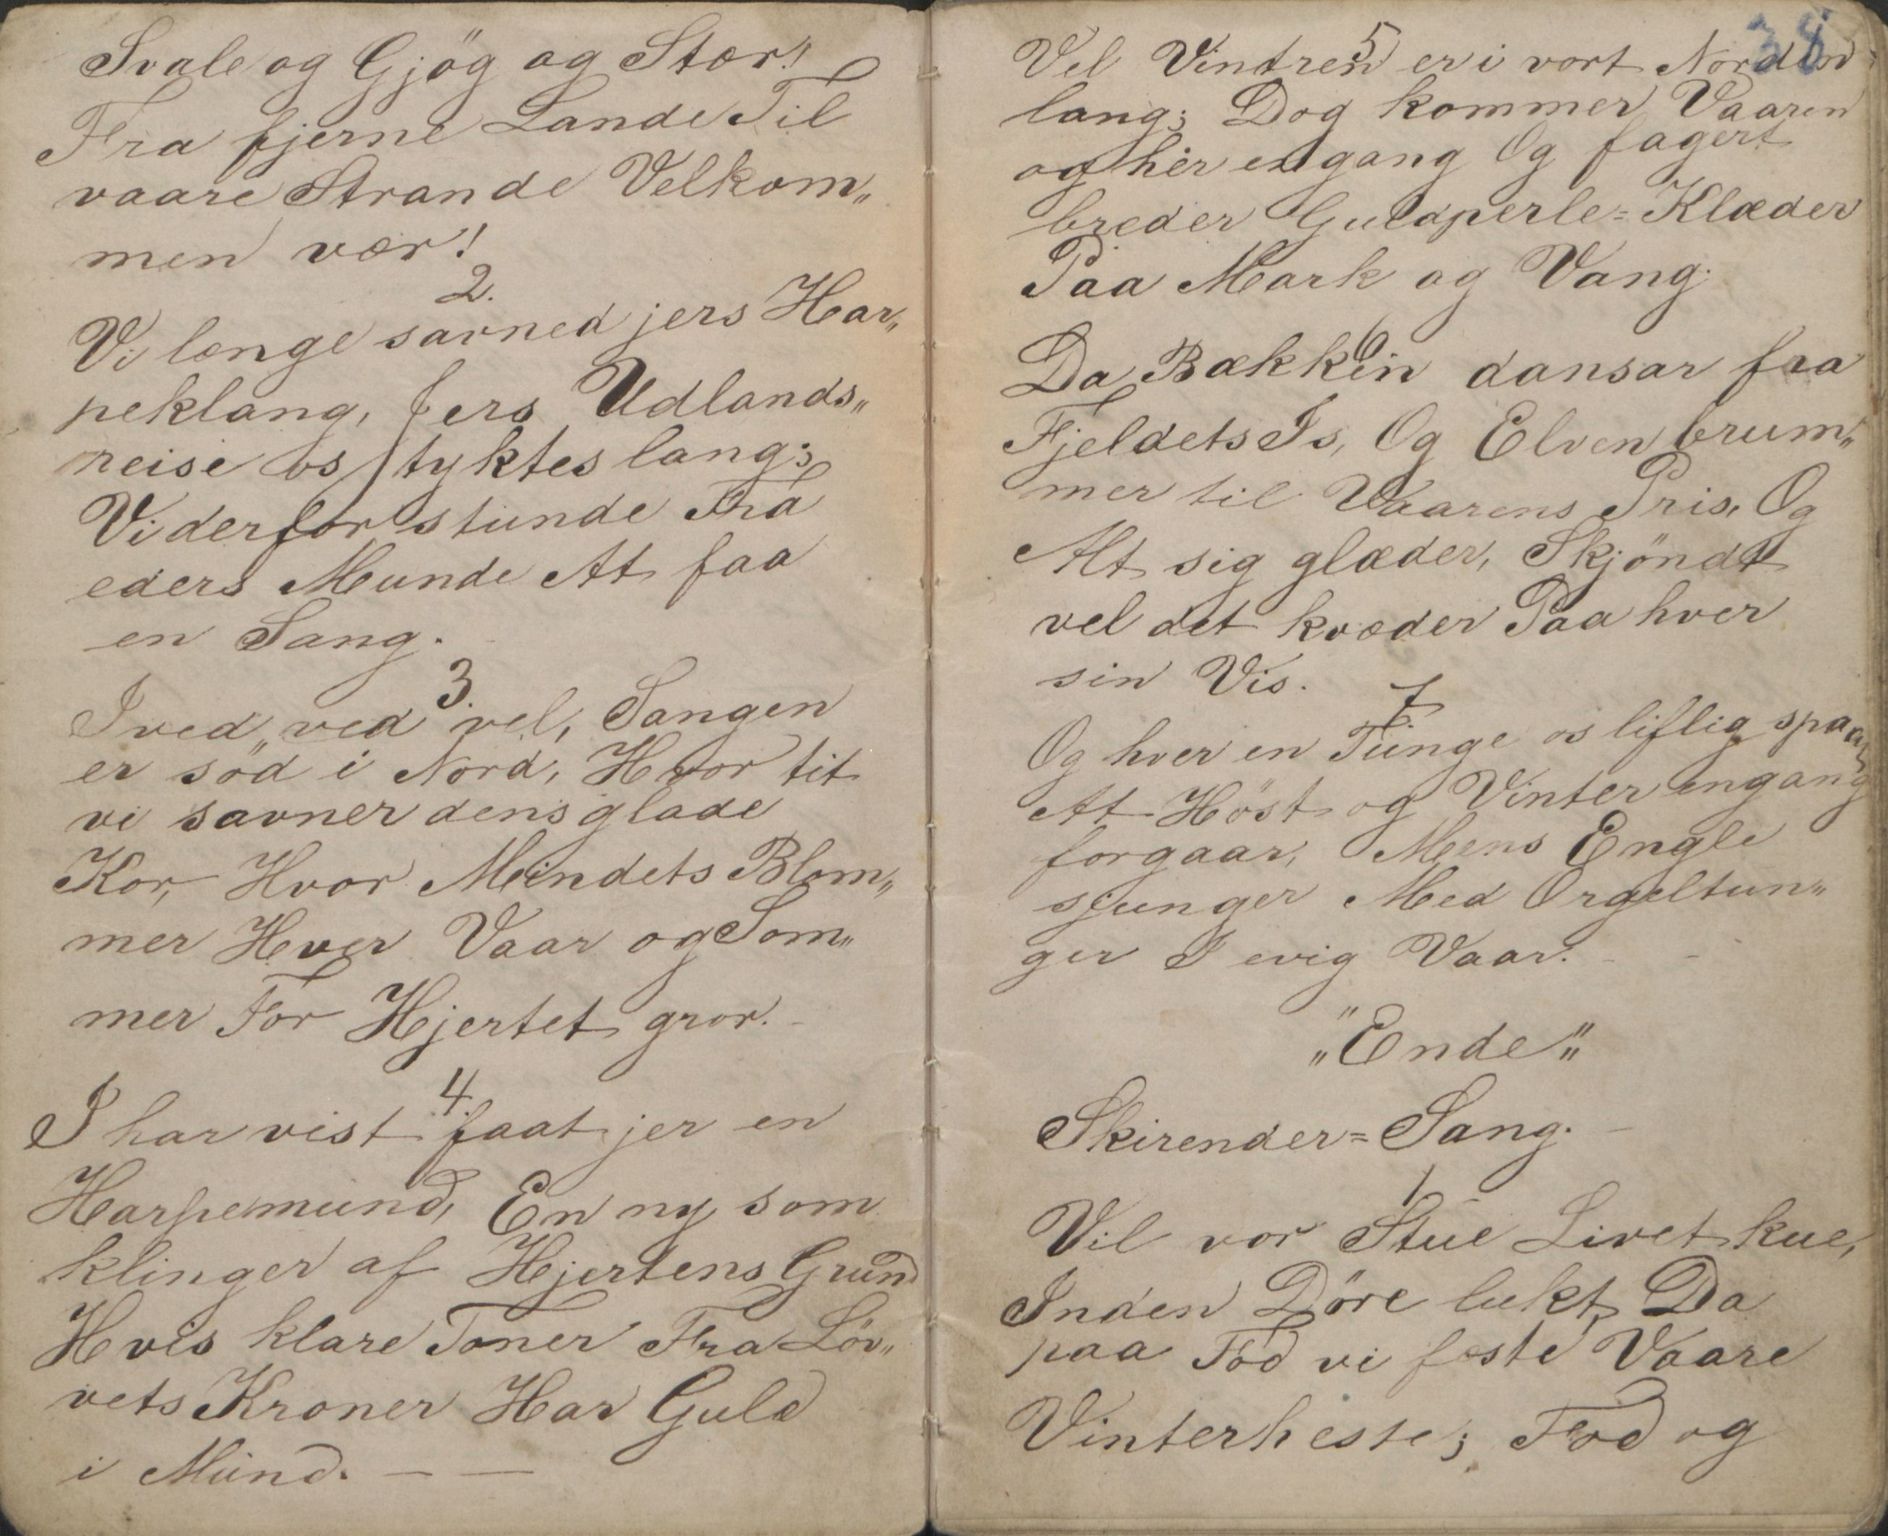 Svale og Gjög og Stær!
Fra fjerne Lande Til
vaare Strande Velkom„
men vær!
2.
Vi længe savned jers Har„
peklang, Jers Udlands„
reise os tyktes lang;
Vi derfor stunde Fra
eders Munde At faa
en Sang.
3.
I ved„ ved vel, Sangen
er söd i Nord, Hvor tit
vi savner dens glade
Kor, Hvor Mindets Blom„
mer Hver Vaar og Som„
mer For Hjertet gror. –
4.
I har vist faat jer en
Harpemund, En ny som
klinger af Hjertens Grund
Hvis klare Toner Fra Löv„
vets Kroner Har Guld
i Mund. — —
38
5
Vel Vintren er i vort Norden
lang; Dog kommer Vaaren
og her engang Og fagert
breder Guldperle=Klæder
Paa Mark og Vang.
6
Da Bækken dansar fra
Fjeldets Is, Og Elven brum„
mer til Vaarens Pris, Og
Alt sig glæder, Skjöndt
vel det kvæder Paa hver
sin Vis.
7.
Og hver en Tunge os liflig spaar
At Höst og Vinter engang
forgaar, Mens Engle
sjunger Med Orgeltun„
ger I evig Vaar. – –
„Ende„
Skirender=Sang. –
1
Vil vor Stue Livet kue,
Inden Döre lukt, Da
paa Fod vi feste Vaare
Vinterheste; Fod og